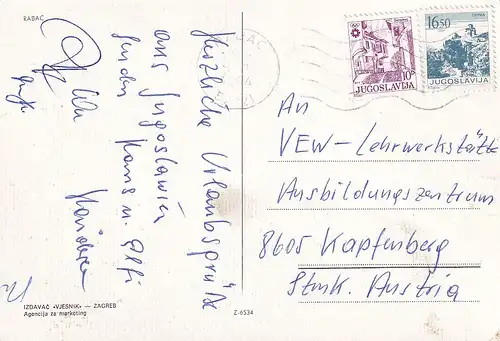 RABAC
Herzliche Urlaubsgrüße
aus Jugoslawien
senden Hans u. Elfi
IZDAVAČ »VJESNIK« — ZAGREB
Agencija za marketing
Z-6534
10
JUGOSLAVIJA
16.50
JUGOSLAVIJA
An
VEW-Lehrwerkstätte
Ausbildungszentrum
8605 Kapfenberg
Stmk. Austria